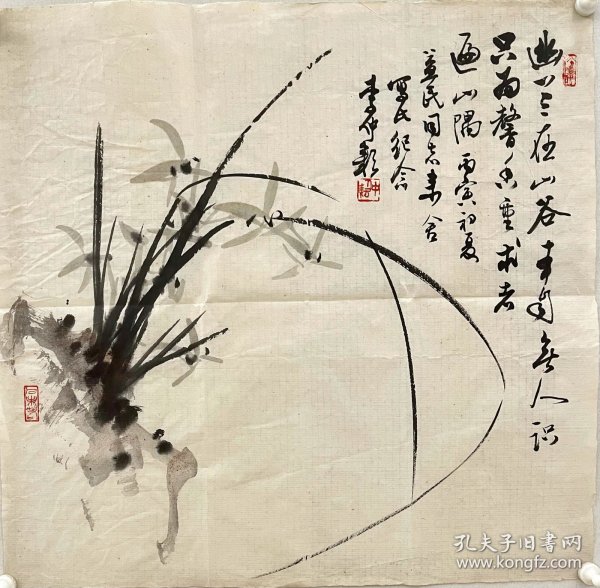 幽兰在山谷本自无人识
只为馨香重求者
遍山隅 丙寅初夏
益民同志来舍
写此纪念
李仲
孔夫子旧书网
www.kongfz.com